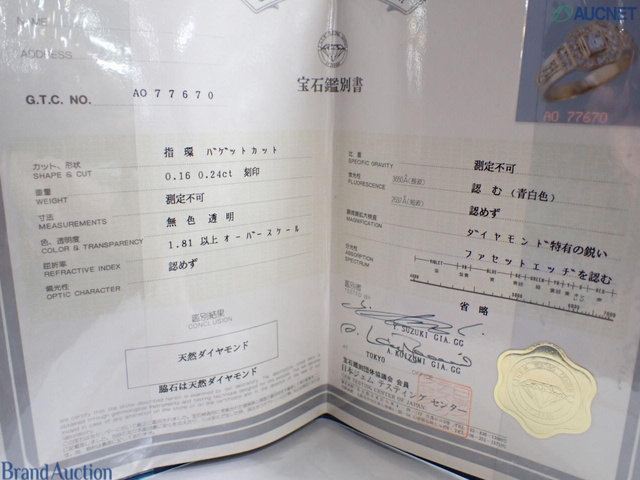 NAME
ADDRESS
G.T.C. NO. AO 77670
宝石鑑別書
AUCNET
AO 77670
カット、形状
SHAPE & CUT
指環 バゲットカット
重量
WEIGHT
0.16 0.24ct 刻印
寸法
MEASUREMENTS
測定不可
色、透明度
COLOR & TRANSPARENCY
無色透明
屈折率
REFRACTIVE INDEX
1.81 以上オーバースケール
偏光性
OPTIC CHARACTER
認めず
鑑別結果
CONCLUSION
天然ダイヤモンド
脇石は天然ダイヤモンド
比重
SPECIFIC GRAVITY
測定不可
蛍光性
FLUORESCENCE
認む(青白色)
認めず
MAGNIFICATION
ダイヤモンド特有の鋭い
ファセットエッヂを認む
ABSORPTION
SPECTRUM
省略
鑑別者
TESTED BY
Y. SUZUKI GIA.GG
A. KOIZUMI GIA.GG
TOKYO
宝石鑑別団体協議会 会員
日本ジェム テスティング センター
Brand Auction